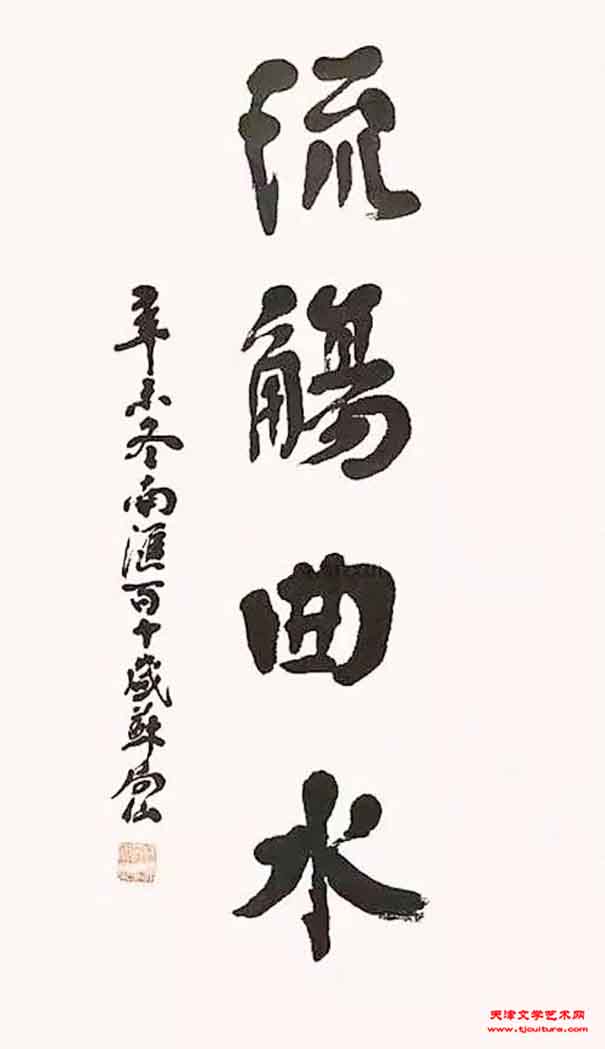 流觴曲水
辛未冬南匯百十歲蘇局仙
天津文学艺术网
www.tjculture.com